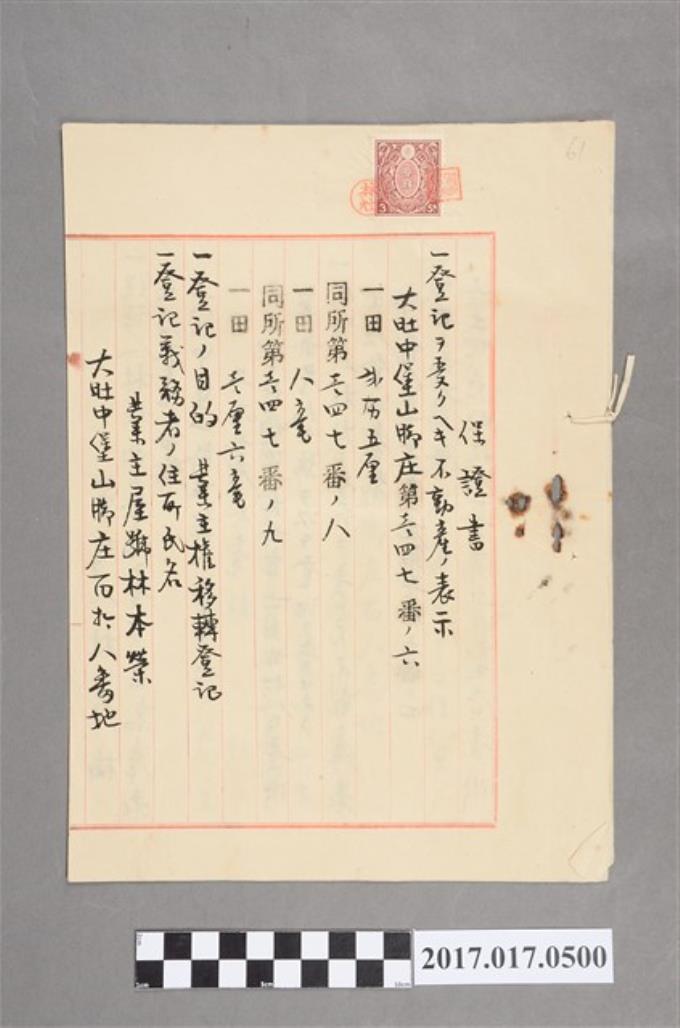 保證書
一登記ヲ受クヘキ不動產ノ表示
大肚中堡山脚庄第壱四七番ノ六
一田 弐分五厘
同所第壱四七番ノ八
一田 八毫
同所第壱四七番ノ九
一田 壱厘六毫
一登記ノ目的 業主權移轉登記
一登記義務者ノ住所氏名
業主屋號林本榮
大肚中堡山脚庄百拾八番地
61
2017.017.0500